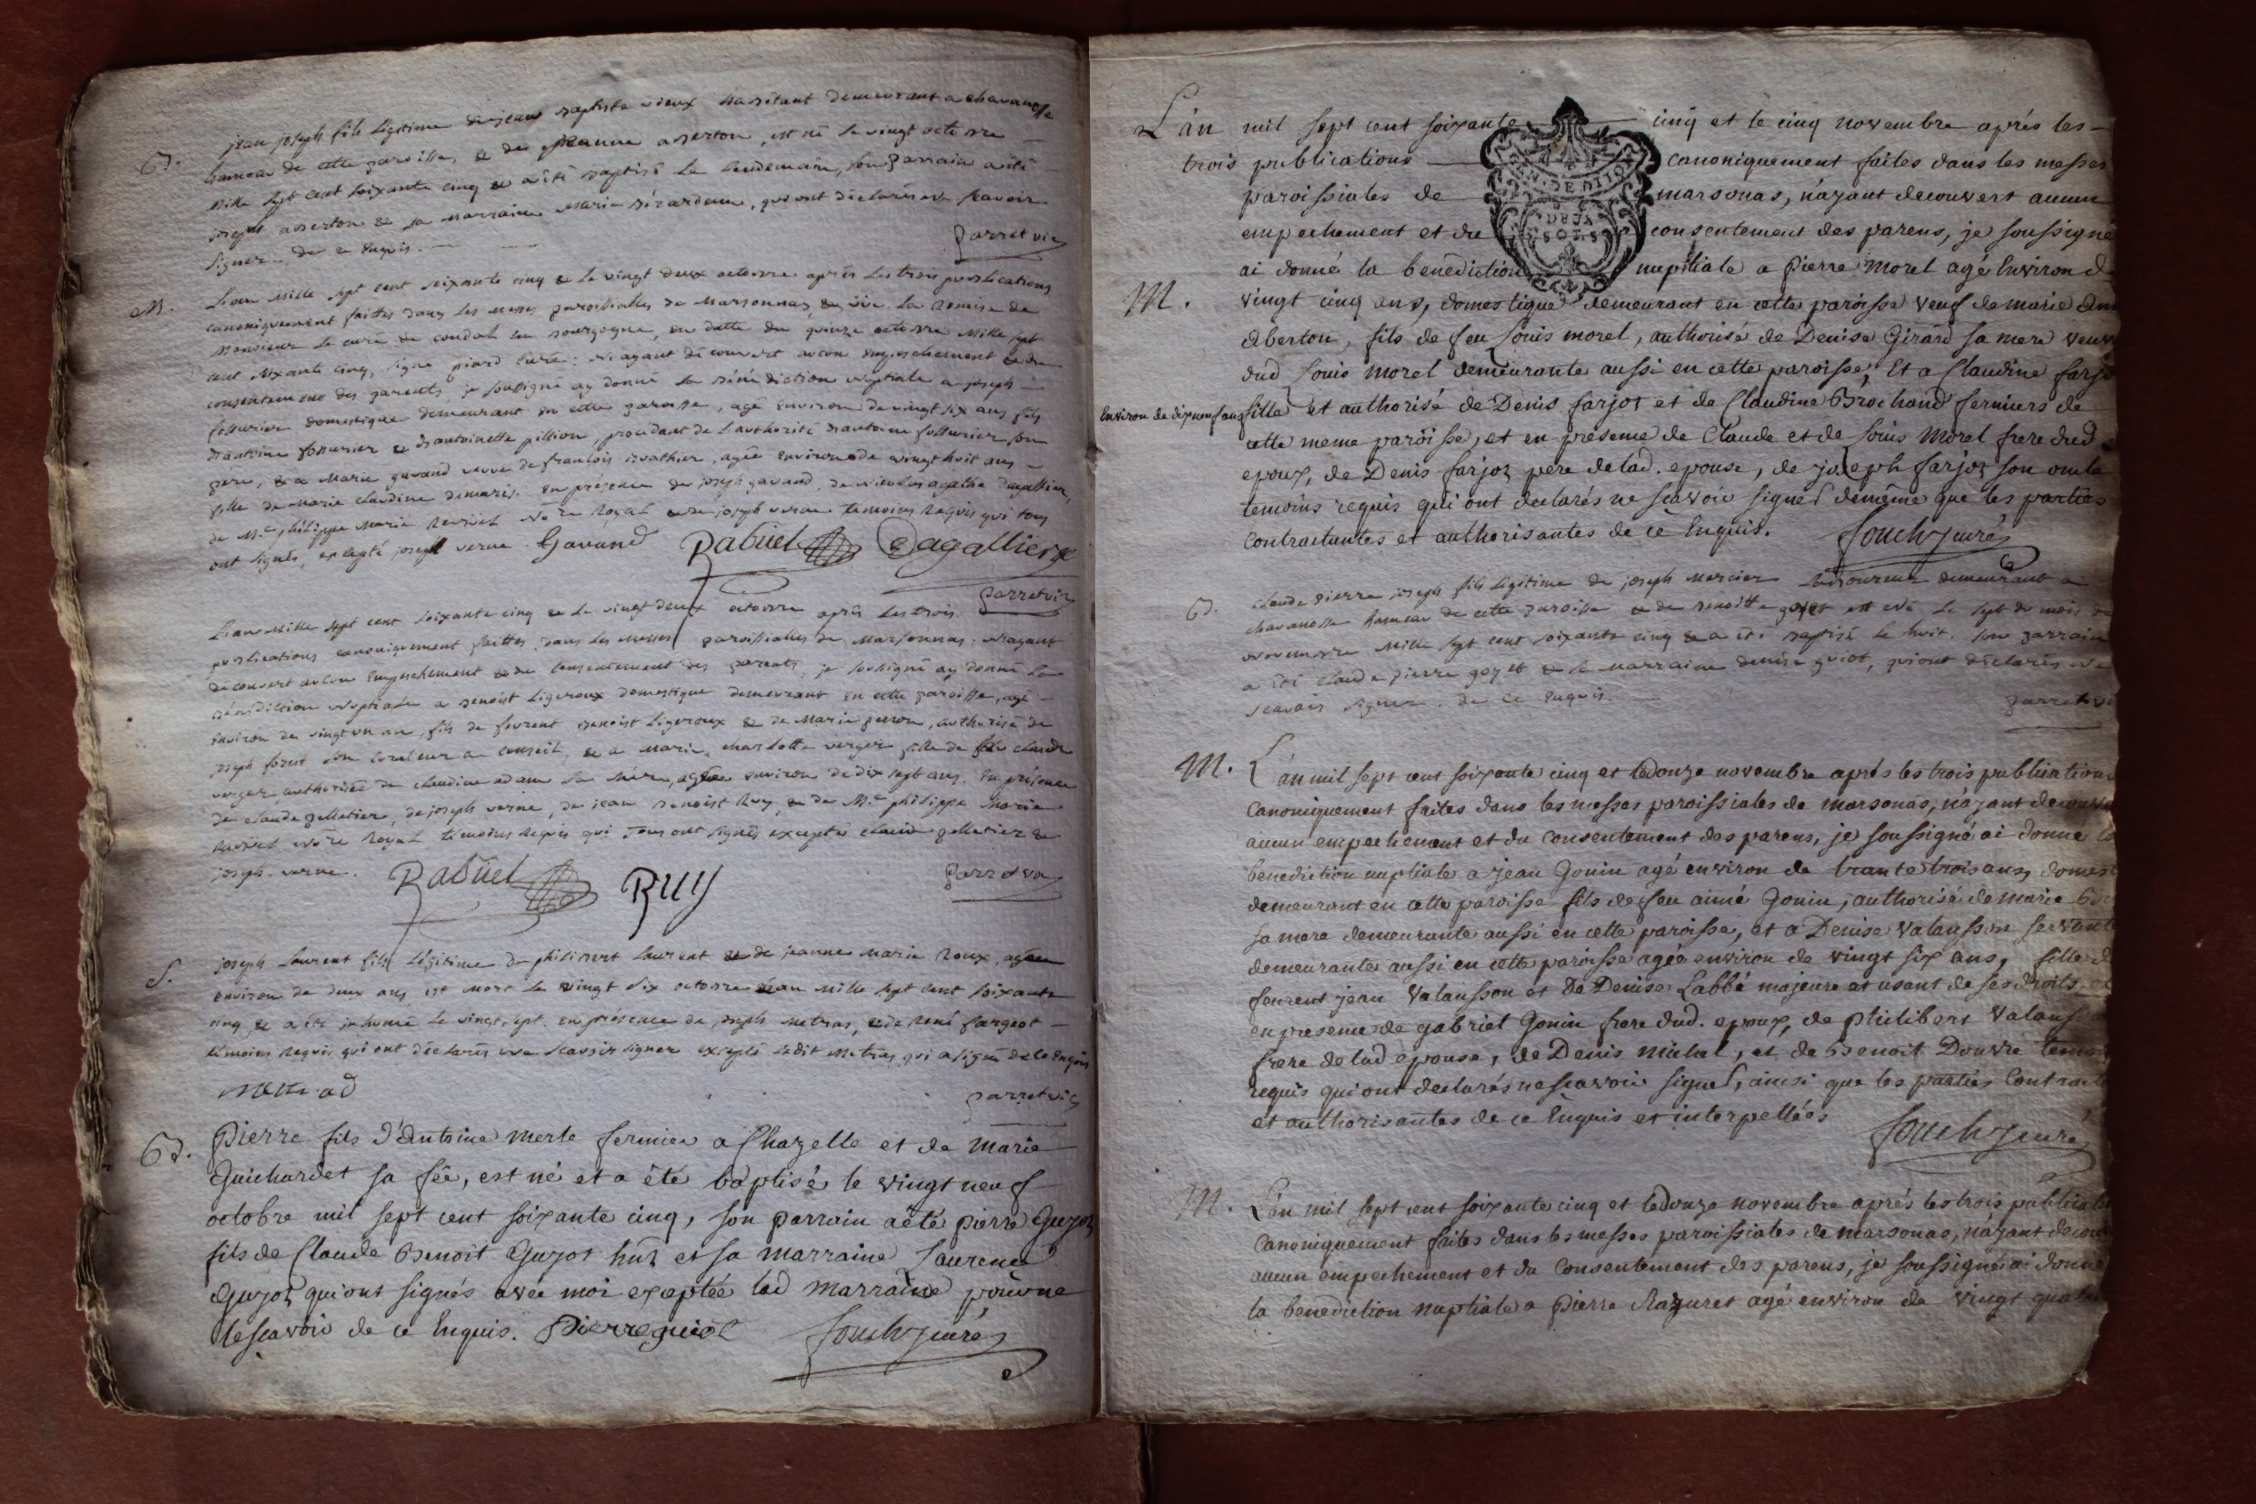 B. jean joseph fils légitime de jean baptiste vieux habitant demeurant a chavanosse
hameau de cette paroisse, & de jeanne aberton, est né le vingt octobre
mille sept cent soixante cinq & a été baptisé le lendemain, son parrain a été
joseph aberton & sa marraine marie, qui ont déclarés ne scavoir
signer de ce enquis.
parret vic
M. L'an mille sept cent soixante cinq & le vingt deux octobre après les trois publications
canoniquement faittes dans les messes paroissialles de marsonnas & vue la remise de
monsieur le curé de condal en bourgogne, en datte du quinze octobre mille sept
cent soixante cinq, signé piard curé: n'ayant découvert aucun empeschement & du
consentement des parents, je soussigné ay donné la bénédiction nuptiale a joseph
domestique demeurant en cette paroisse, agé environ de vingt six ans fils
d'antoine & d'antoinette pillion, procédant de l'authorité d'antoine son
pere, & a marie gavand veuve de françois, agée environ de vingt huit ans
fille de marie claudine. en présence de joseph gavand, de nicolas agathe Dagallier,
de Me philippe marie Rabüel no.re Royal & de joseph verne temoins Requis qui tous
ont signés, excepté joseph verne. Gavand Rabüel Dagallier
parret vic
L'an mille sept cent soixante cinq & le vingt deux octobre après les trois
publications canoniquement faittes dans les messes paroissialles de marsonnas. n'ayant
découvert aucun empeschement & du consentement des parents, je soussigné ay donné la
bénédiction nuptiale a benoist Ligeroux domestique demeurant en cette paroisse, agé
environ de vingt un an, fils de feurent benoist Ligeroux & de marie perron, authorisé de
joseph son curateur a conseil, & a marie charlotte verger fille de feu claude
verger authorisée de claudine adam sa mère, agée environ de dix sept ans. En présence
de claude pelletier, de joseph verne, de jean benoist Ruy & de Me philippe marie
Rabüel no.re Royal temoins Requis qui tous ont signés exceptés claude pelletier &
joseph verne. Rabüel Ruy
parret vic
S. joseph Laurent fils légitime de philibert Laurent & de jeanne marie Roux, agé
environ de deux ans, est mort le vingt six octobre l'an mille sept cent soixante
cinq & a été inhumé le vingt sept en présence de joseph metras, & de René fargeot
témoins Requis qui ont déclarés ne scavoir signer excepté ledit metras qui a signé de ce Enquis
parret vic
B. Pierre fils d'Antoine Merle fermier a Chazelle et de marie
Guichardet sa fée, est né et a été baptisé le vingt neuf
octobre mil sept cent soixante cinq, son parrain a été pierre Guyot
fils de Claude Benoit Guyot hut et sa marraine Laurence
Guyot qui ont signés avec moi exceptée lad marraine pour ne
le scavoir de ce Enquis. Pierre guiot

L'an mil sept cent soixante cinq et le cinq novembre aprés les
trois publications canoniquement faites dans les messes
paroissiales de marsonas, n'ayant decouvert aucun
GEN. DE DIJON
DEUX
SOLS
empechement et du consentement des parens, je soussigné
ai donné la benediction nuptiale a Pierre Morel agé Environ d
M. vingt cinq ans, domestique demeurant en cette paroisse veuf de marie
Aberton, fils de feu Louis morel, authorisé de Denise Girard sa mere veuve
dud Louis Morel demeurante aussi en cette paroisse, Et a Claudine farjo
Environ de dix neuf ans fille et authorisé de Denis farjot et de Claudine Brochand fermiers de
cette meme paroisse, et en presence de Claude et de Louis Morel frere dud
epoux, de Denis farjoz pere de lad. epouse, de joseph farjoz son oncle
temoins requis qui ont declarés ne scavoir signer demême que les parties
contractantes et authorisantes de ce Enquis.
B. claude pierre joseph fils légitime de joseph mercier laboureur demeurant a
chavanosse hameau de cette paroisse & de benoitte goyet est né le sept du mois de
novembre mille sept cent soixante cinq & a été baptisé le huit. son parrain
a été claude pierre goyet & sa marraine denise guiot, qui ont déclarés ne
scavoir signer de ce enquis.
parret vi
M. L'an mil sept cent soixante cinq et le douze novembre aprés les trois publications
canoniquement faites dans les messes paroissiales de marsonas, n'ayant decouve
aucun empechement et du consentement des parens, je soussigné ai donné la
benediction nuptiale a jean Gonin agé environ de trante trois ans, domest
demeurant en cette paroisse fils de feu aimé Gonin, authorisé de marie
sa mere demeurante aussi en cette paroisse, et a Denise Valansson servante
demeurante aussi en cette paroisse agée environ de vingt six ans, fille d
feurent jean Valansson et de Denise Labbé majeure et usant de ses droits, et
en presence de gabriel Gonin frere dud. epoux, de Philibert Valanss
frere de lad epouse, de Denis Michel, et de Benoit Douvre temoi
requis qui ont declarés ne scavoir signer, ainsi que les parties Contracta
et authorisantes de ce Enquis et interpellées
M. L'an mil sept cent soixante cinq et le douze novembre aprés les trois publicat
canoniquement faites dans les messes paroissiales de marsonas, n'ayant decou
aucun empechement et du consentement des parens, je soussigné ai donné
la benediction nuptiale a Pierre Razuret agé environ de vingt quatre